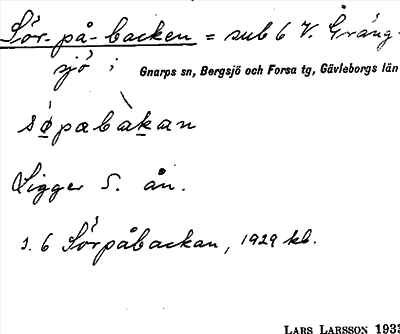 Sör-på-backen = sub 6 V. Gräng-
sjö i Gnarps sn, Bergsjö och Forsa tg, Gävleborgs län
søpabakan
Ligger S. ån.
s. 6 Sörpåbackan, 1929 kb.
LARS LARSSON 1933